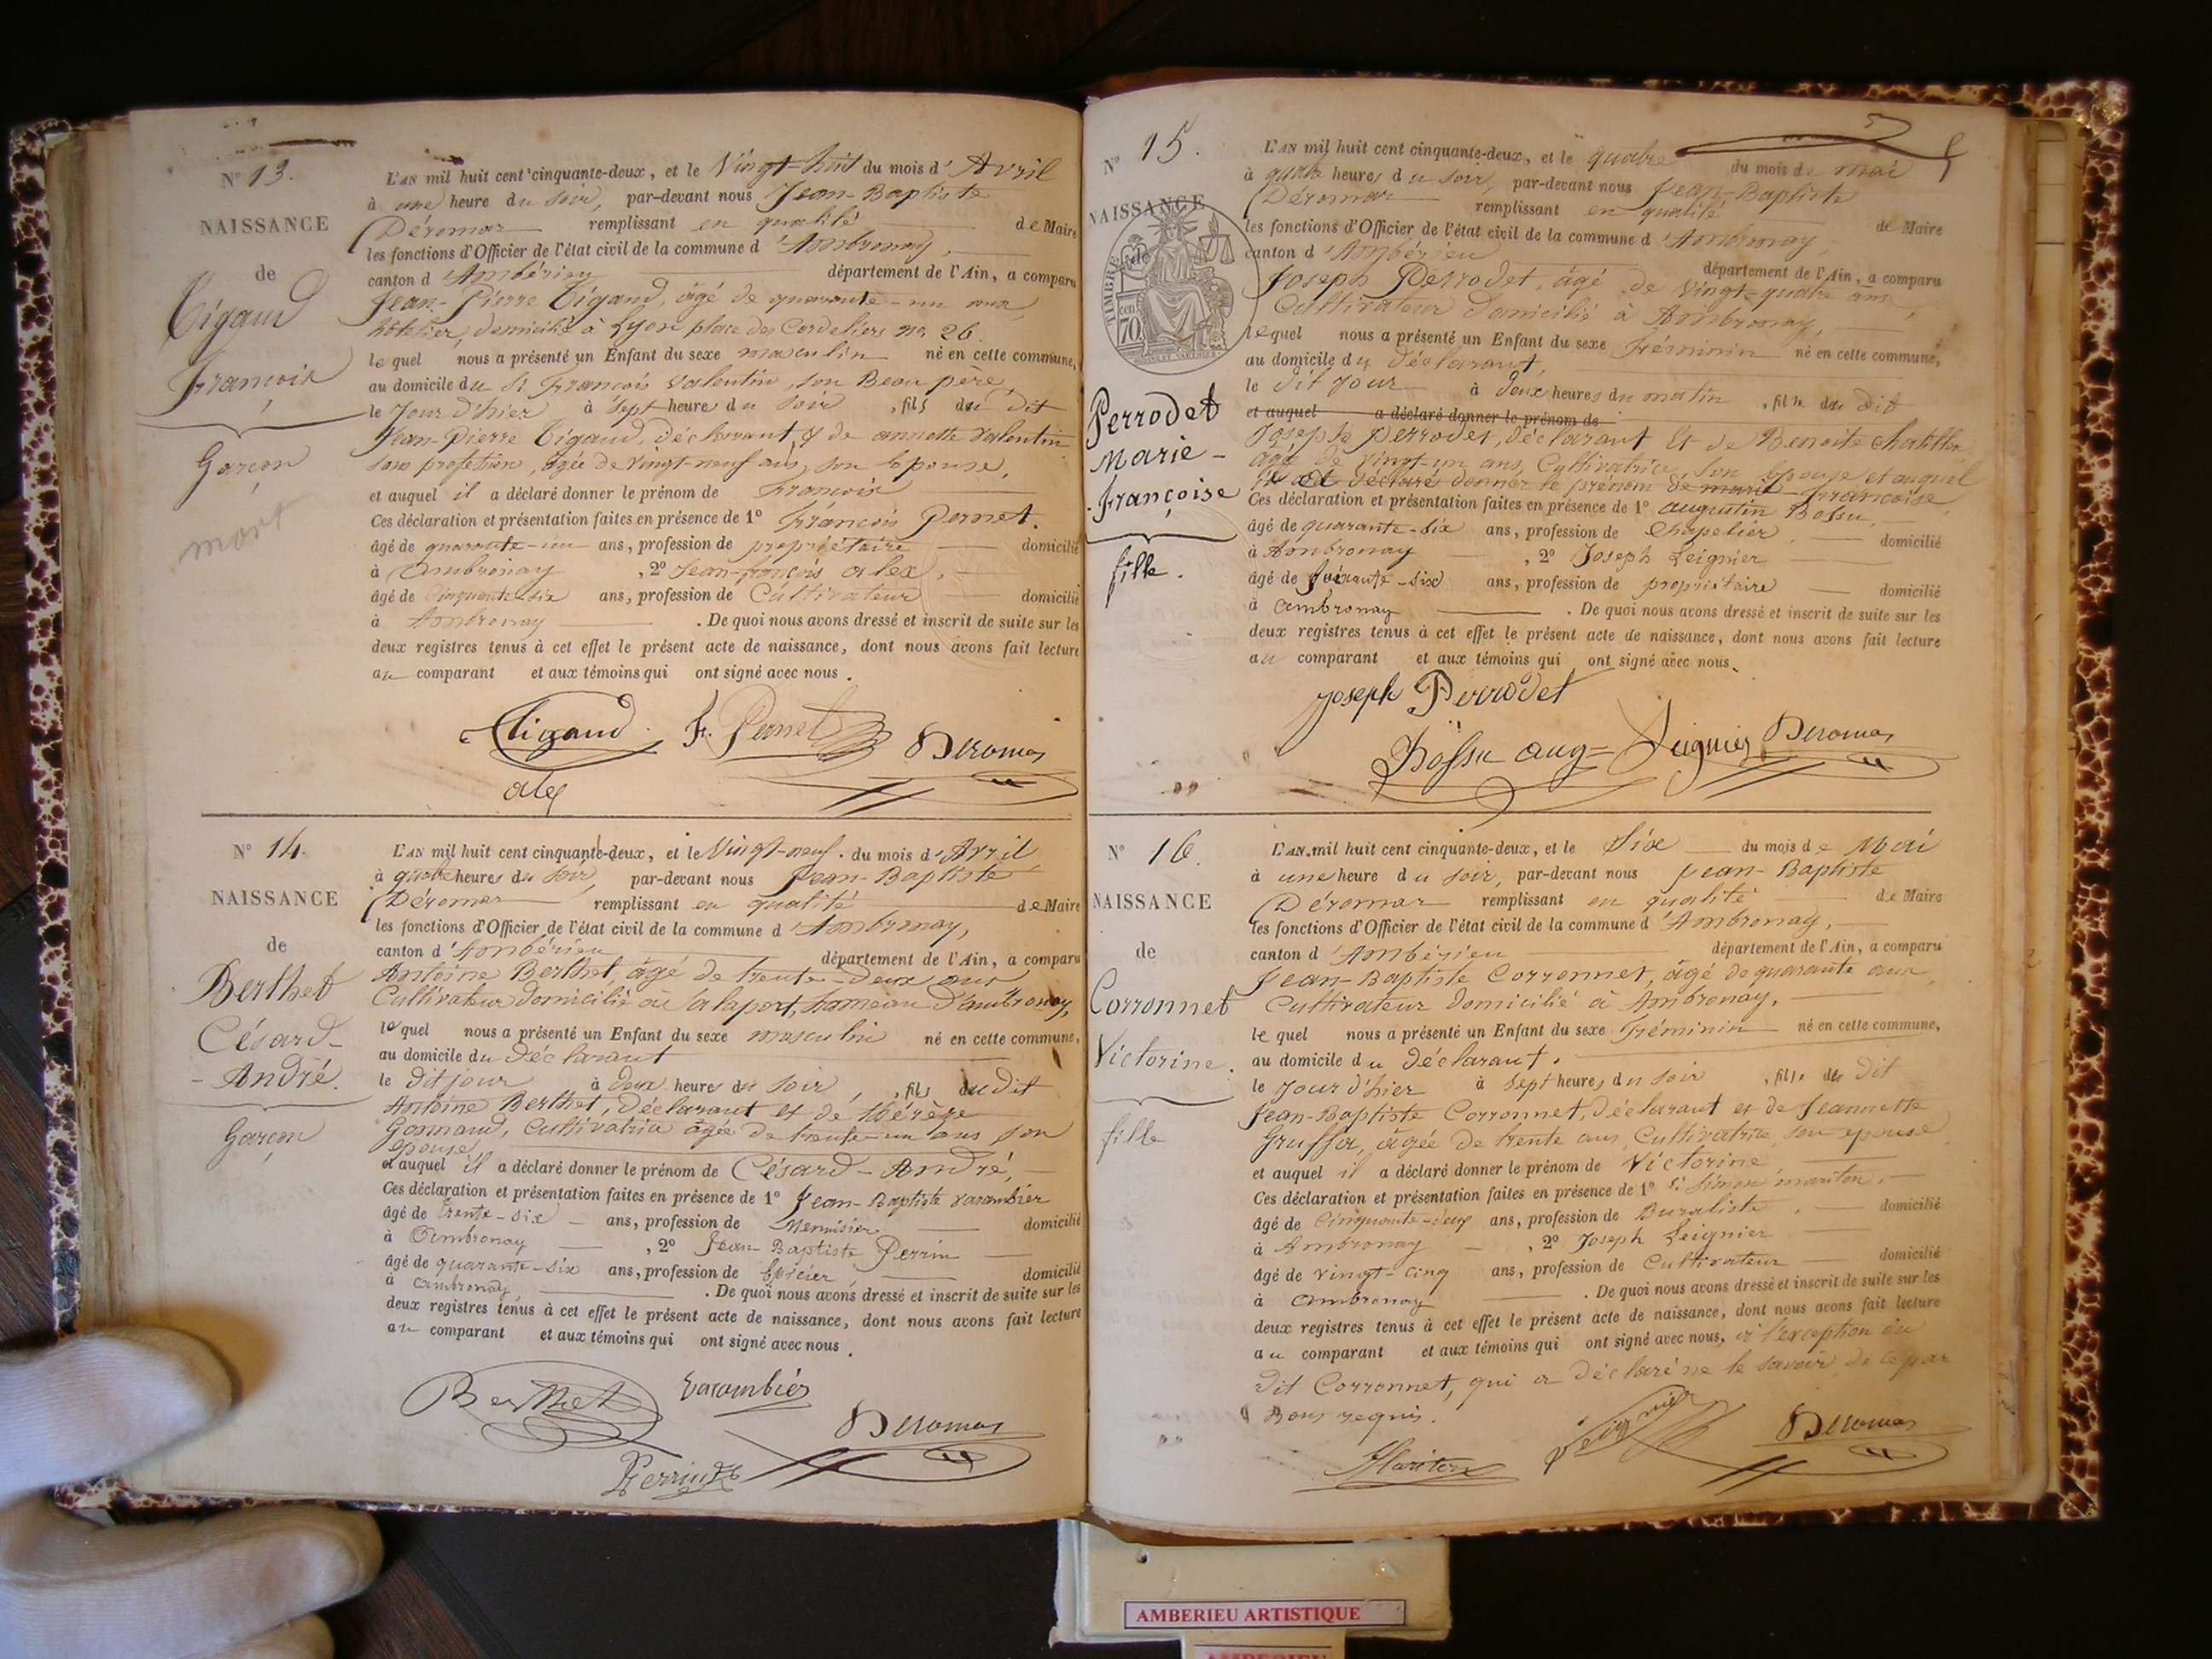 Nº 13.
NAISSANCE
de
Tigaud
François
Garçon
mort
L'AN mil huit cent cinquante-deux, et le Vingt-huit du mois d'Avril
à une heure du soir, par-devant nous Jean-Baptiste
Déromas remplissant en qualité de Maire
les fonctions d'Officier de l'état civil de la commune d'Ambronay,
canton d'Ambérieu département de l'Ain, a comparu
Jean-Pierre Tigaud, âgé de quarante-un ans
hôtelier, domicilié à Lyon place des Cordeliers no. 26
lequel nous a présenté un Enfant du sexe masculin né en cette commune,
au domicile du Sr. François Valentin, son Beau père,
le Jour d'hier à Sept heures du soir, fils du dit
Jean-Pierre Tigaud, déclarant, & de annette Valentin
sans profession, âgée de vingt-neuf ans, son épouse,
et auquel il a déclaré donner le prénom de François
Ces déclaration et présentation faites en présence de 1º François Pernet.
âgé de quarante-un ans, profession de propriétaire domicilié
à Ambronay, 2º Jean-françois alex,
âgé de Cinquante-six ans, profession de Cultivateur domicilié
à Ambronay. De quoi nous avons dressé et inscrit de suite sur les
deux registres tenus à cet effet le présent acte de naissance, dont nous avons fait lecture
au comparant et aux témoins qui ont signé avec nous.
Tigaud F. Pernet Deromas
alex
Nº 14.
NAISSANCE
de
Berthet
Césard-
-André.
Garçon
L'AN mil huit cent cinquante-deux, et le Vingt-neuf. du mois d'Avril
à quatre heures du soir, par-devant nous Jean-Baptiste
Déromas remplissant en qualité de Maire
les fonctions d'Officier de l'état civil de la commune d'Ambronay,
canton d'Ambérieu département de l'Ain, a comparu
Antoine Berthet, âgé de trente-deux ans
Cultivateur domicilié à Salaport, hameau d'ambronay,
lequel nous a présenté un Enfant du sexe masculin né en cette commune,
au domicile du Déclarant
le dit jour à deux heures du soir, fils du dit
Antoine Berthet, Déclarant et de thérèze
Cultivatrice âgée de trente-un ans, son
épouse
et auquel il a déclaré donner le prénom de Césard-André,
Ces déclaration et présentation faites en présence de 1º Jean-Baptiste Varambier
âgé de trente-six ans, profession de Menuisier domicilié
à Ambronay, 2º Jean Baptiste Perrin
âgé de quarante-six ans, profession de Epicier domicilié
à ambronay. De quoi nous avons dressé et inscrit de suite sur les
deux registres tenus à cet effet le présent acte de naissance, dont nous avons fait lecture
au comparant et aux témoins qui ont signé avec nous.
Berthet Varambier
Deromas
Perrin
Nº 15.
NAISSANCE
de
TIMBRE
70
Perrodet
Marie-
-Françoise
fille.
L'AN mil huit cent cinquante-deux, et le quatre du mois de mai
à quatre heures du soir, par-devant nous Jean-Baptiste
Déromas remplissant en qualité de Maire
les fonctions d'Officier de l'état civil de la commune d'Ambronay
canton d'Ambérieu département de l'Ain, a comparu
Joseph Perrodet, âgé de vingt-quatre ans,
Cultivateur domicilié à Ambronay,
lequel nous a présenté un Enfant du sexe Féminin né en cette commune,
au domicile du déclarant,
le dit Jour à deux heures du matin, fille du dit
et auquel a déclaré donner le prénom de
Joseph Perrodet, déclarant et de Benoite
âgée de Vingt-un ans, Cultivatrice, son épouse et auquel
il a déclaré donner le prénom de marie-françoise
Ces déclaration et présentation faites en présence de 1º augustin Bossu,
âgé de quarante-six ans, profession de Chapelier, domicilié
à Ambronay, 2º Joseph Leignier
âgé de soixante-six ans, profession de propriétaire domicilié
à ambronay. De quoi nous avons dressé et inscrit de suite sur les
deux registres tenus à cet effet le présent acte de naissance, dont nous avons fait lecture
au comparant et aux témoins qui ont signé avec nous.
Joseph Perrodet
Bossu aug= Leignier Deromas
Nº 16.
NAISSANCE
de
Corronnet
Victorine.
fille
L'AN mil huit cent cinquante-deux, et le Six du mois de Mai
à une heure du soir, par-devant nous Jean-Baptiste
Déromas remplissant en qualité de Maire
les fonctions d'Officier de l'état civil de la commune d'Ambronay,
canton d'Ambérieu département de l'Ain, a comparu
Jean-Baptiste Corronnet, âgé de quarante ans
Cultivateur domicilié à Ambronay.
lequel nous a présenté un Enfant du sexe Féminin né en cette commune,
au domicile du Déclarant.
le Jour d'hier à Sept heures du soir, fille du dit
Jean-Baptiste Corronnet, déclarant et de Jeannette
Gruffa, âgée de trente ans, Cultivatrice, son épouse
et auquel il a déclaré donner le prénom de Victorine
Ces déclaration et présentation faites en présence de 1º Sr. Siméon mariton,
âgé de Cinquante-deux ans, profession de Buraliste, domicilié
à Ambronay, 2º Joseph Leignier
âgé de vingt-cinq ans, profession de Cultivateur domicilié
à ambronay. De quoi nous avons dressé et inscrit de suite sur les
deux registres tenus à cet effet le présent acte de naissance, dont nous avons fait lecture
au comparant et aux témoins qui ont signé avec nous, à l'exception du
dit Corronnet, qui a déclaré ne le savoir, de ce par
nous requis.
Mariton Leignier Deromas
AMBERIEU ARTISTIQUE
AMBERIEU